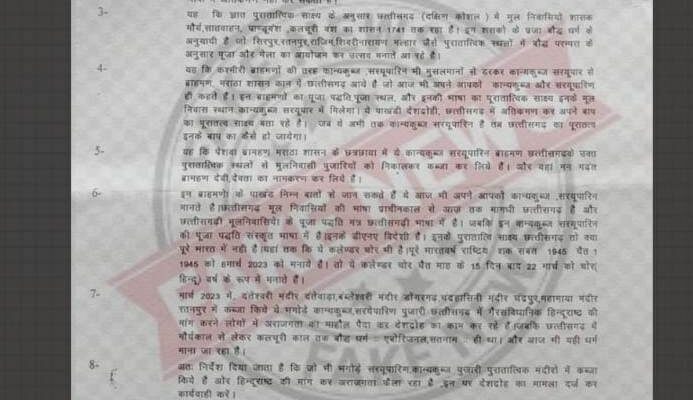 3-
यह कि ज्ञात पुरातात्विक साक्ष्य के अनुसार छत्तीसगढ़ (दक्षिण कोशल) में मूल निवासियों शासक
मौर्य,सातवाहन, पाण्डूवंश ,कलचुरी वंश का शासन 1741 तक रहा है। इन शासकों के प्रजा बौद्ध धर्म के
अनुयायी है जो सिरपुर,रतनपुर,राजिम,शिवरीनारायण मल्हार जैसे पुरातात्विक स्थलों में बौद्ध परम्परा के
अनुसार पूजा और मेला का आयोजन कर उत्सव मनाते आ रहे है।
4-
यह कि कश्मीरी ब्राह्मणों की तरह कान्यकुब्ज ,सरयूपारिण भी मुसलमानों से डरकर कान्यकुब्ज सरयूपार से
ब्राहमण, मराठा शासन काल में छत्तीसगढ़ आये है जो आज भी अपने आपको कान्यकुब्ज और सरयूपारिण
ही कहते है। इन ब्राहमणों का पूजा पद्धति,पूजा स्थल, और इनकी भाषा का पुरातात्विक साक्ष्य इनके मूल
निवास स्थान कान्यकुब्ज सरयूपार में मिलेगा। ये पाखंडी देशद्रोही, छत्तीसगढ़ में अतिक्रमण कर अपने बाप
का पुरातत्व साक्ष्य बता रहे है। जब ये अभी तक कान्यकुब्ज सरयूपारिन है तब छत्तीसगढ़ का पुरातत्व
इनके बाप का कैसे हो जायेगा।
5-
यह कि पेशवा ब्राम्हण मराठा शासन के छत्रछाया में ये कान्यकुब्ज सरयूपारिन ब्राहमण छत्तीसगढ़के उक्त
पुरातात्विक स्थलों से मूलनिवासी पुजारियों को निकालकर कब्जा कर लिये है। और यहां मन गढ़त
ब्राम्हण देवी,देवता का नामकरण कर लिये है।
6-
इन ब्राहमणों के पाखंड निम्न बातों से जान सकते है ये आज भी अपने आपको कान्यकुब्ज ,सरयूपारिन
मानते है।छत्तीसगढ़ मूल निवासियों की भाषा प्राचीनकाल से आज तक मागधी छत्तीसगढ़ी है और
छत्तीसगढ़ी मूलनिवासियों के पूजा पद्धति मंत्र छत्तीसगढ़ी भाषा में है। जबकि इन कान्यकुब्ज सरयूपारिन
की पूजा पद्धति संस्कृत भाषा में है।इनके डीएनए विदेशी है। इनके पुरातात्वि साक्ष्य छत्तीसगढ़ तो क्या
पूरे भारत में नही है।यहां तक कि ये कलेण्डर चोर भी है।पूरे भारतवर्ष राष्ट्रिय शक संवत 1945 चैत 1
1945 को 22मार्च 2023 को मनाये है। तो ये कलेण्डर चोर चैत माह के 15 दिन बाद 22 मार्च को चोर(
हिन्दू) वर्ष के रूप में मनाते है।
7-
मार्च 2023 में, दंतेश्वरी मंदीर दंतेवाड़ा,बम्लेश्वरी मंदीर डोंगरगढ़,चंद्रहासिनी मंदीर चंद्रपुर,महामाया मंदीर
रतनपुर में कब्जा किये ये भगोड़े कान्यकुब्ज,सरयूपारिण पुजारी छत्तीसगढ़ में गैरसंविधानिक हिन्दूराष्ट्र की
मांग करने लोगों में अराजगता का माहौल पैदा कर देशद्रोह का काम कर रहे है।जबकि छत्तीसगढ़ में
मौर्यकाल से लेकर कलचुरी काल तक बौद्ध धर्म :: एबोरिजनल,सतनाम :: ही था। और आज भी यही धर्म
माना जा रहा है।
8-
अतः निर्देश दिया जाता है कि जो भी भगोड़े सरयूपारिण,कान्यकुब्ज पुजारी पुरातात्विक मंदीरों में कब्जा
किये है और हिन्दूराष्ट्र की मांग कर अराजगता फैला रहा है ,इन पर देशद्रोह का मामला दर्ज कर
कार्यवाही करें।
FAKE NEWS